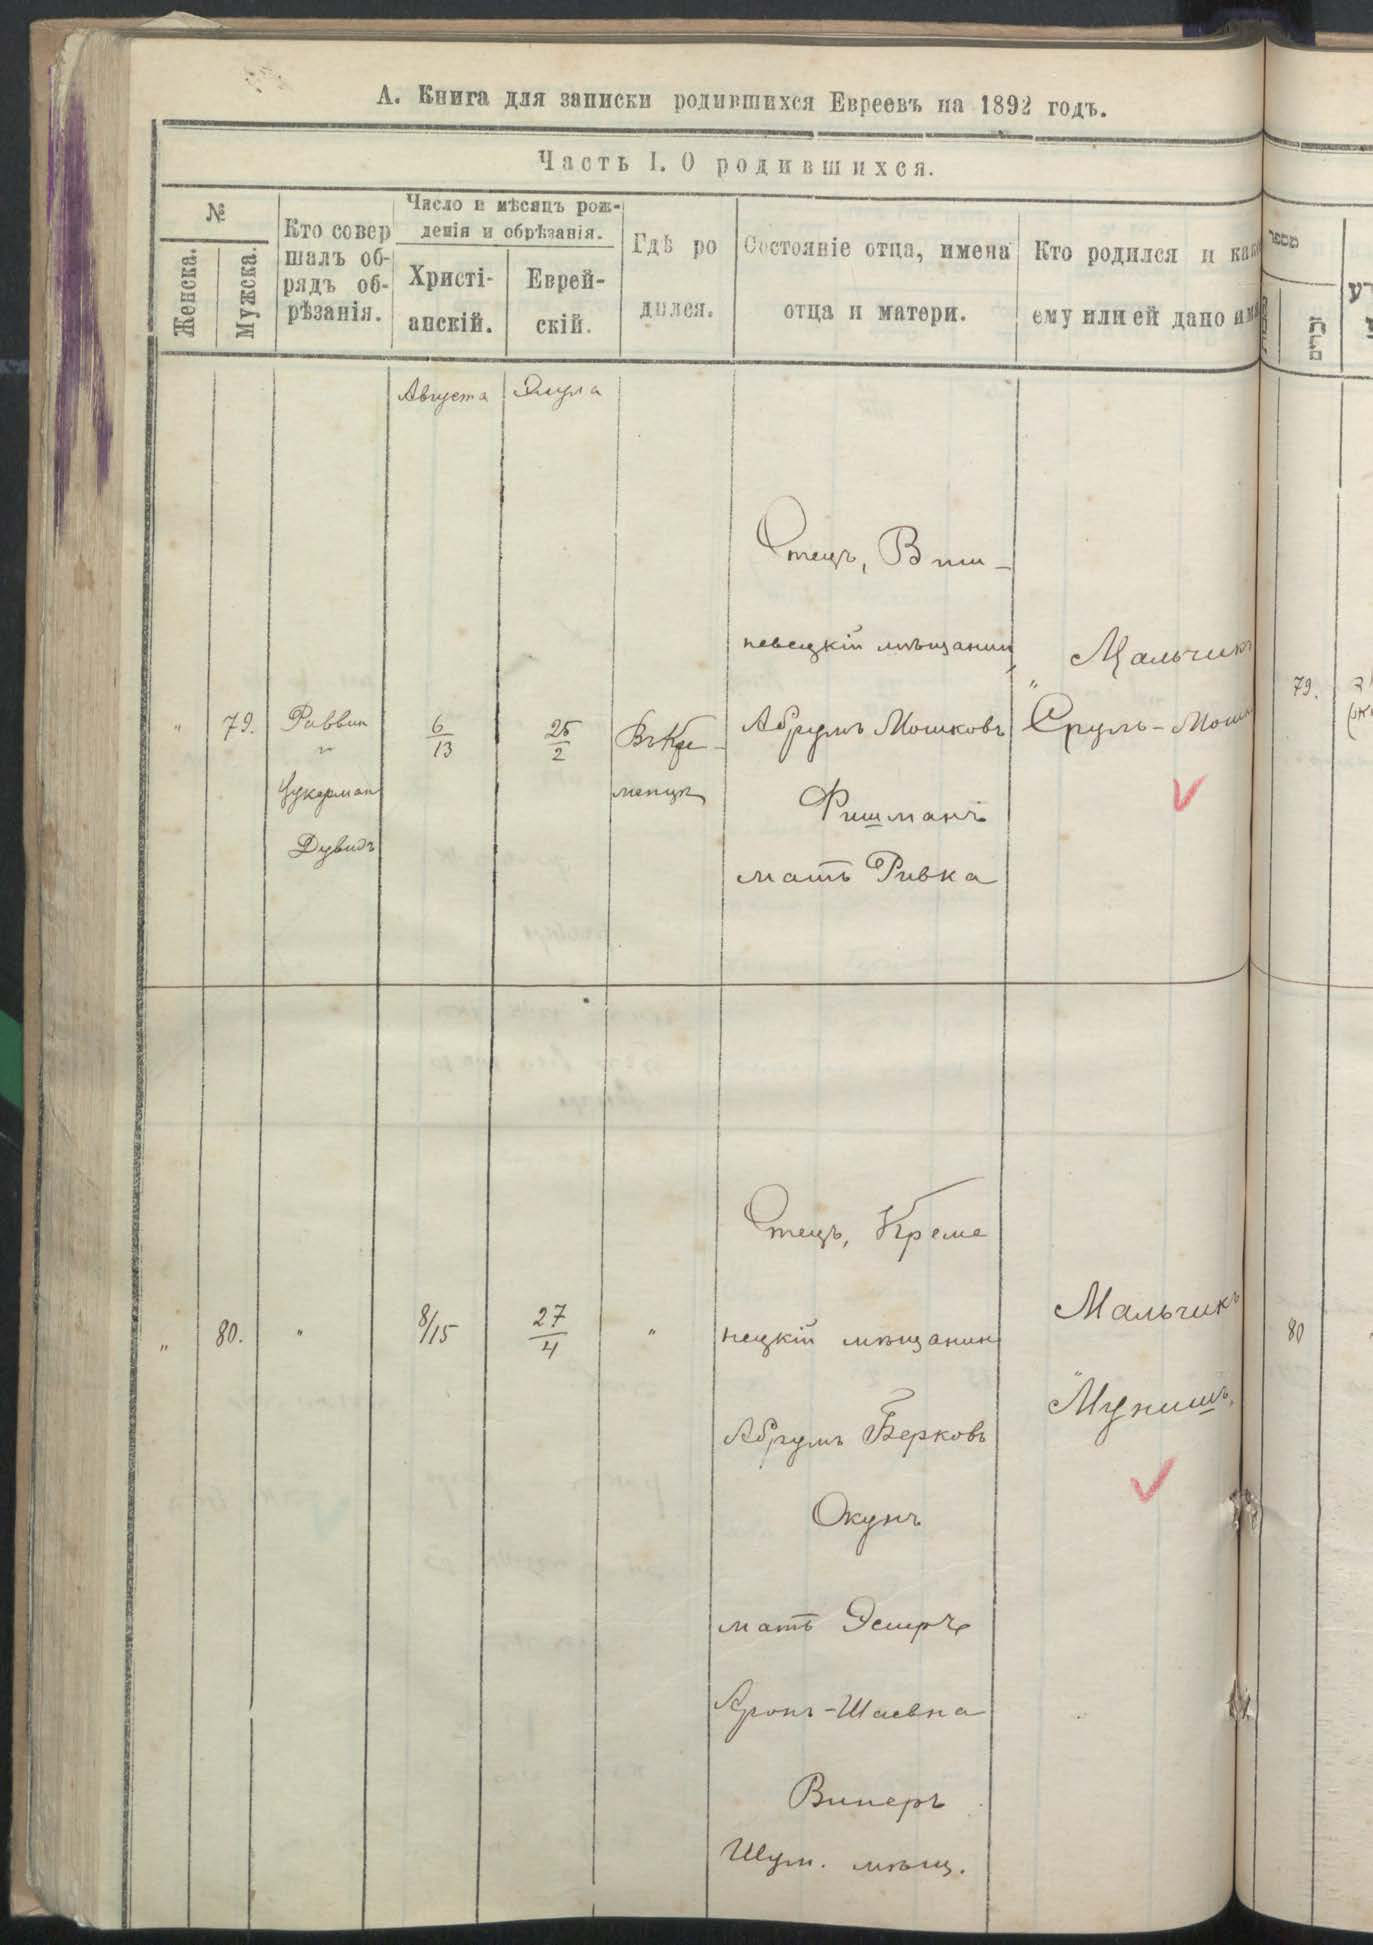 А. Книга для записки родившихся Евреевъ на 1892 годъ.
Часть I. О родившихся.
№
Женска.
Мужска.
Кто совер
шалъ об-
рядъ об-
рѣзанія.
Число и мѣсяцъ рож-
денія и обрѣзанія.
Христі-
анскій.
Еврей-
скій.
Гдѣ ро
дился.
Состояніе отца, имена
отца и матери.
Кто родился и како
ему или ей дано имя
מספר
זכרים
Августа
Элула
"
79.
Раввин
Цукерман
Дувидъ
6
13
25
2
Въ Кре-
менцѣ
Отецъ, Виш-
невецкій мѣщанинъ
Абрумъ Мошковъ
Фишманъ
мать Ривка
Мальчикъ
"Срулъ-Мошко
79.
"
80.
"
8/15
27
4
"
Отецъ, Креме
нецкій мѣщанин
Абрумъ Берковъ
Окунь
мать Эстеръ
Аронъ-Шаевна
Винеръ
Шум. мѣщ.
Мальчикъ
"Мунишъ,
80